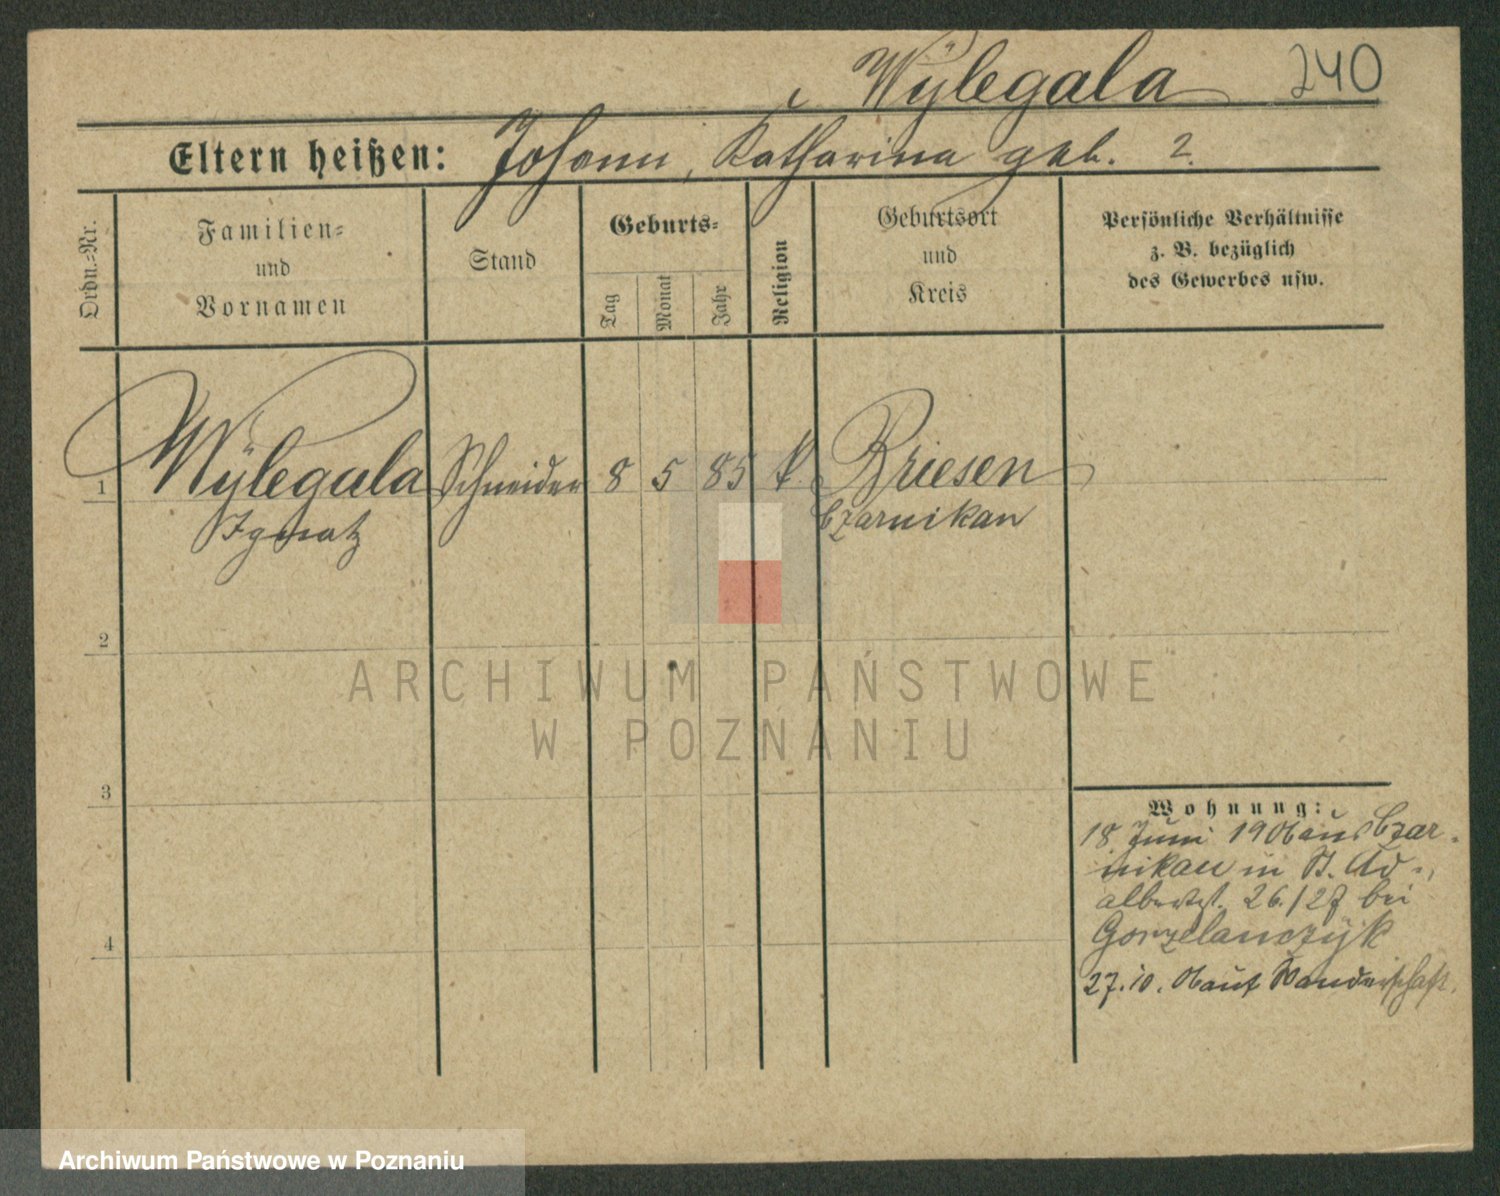 Wÿlegala 240
Eltern heißen: Johann, Katharina geb. ?.
Ordn.-Nr.
Familien-
und
Vornamen
Stand
Geburts-
Tag
Monat
Jahr
Religion
Geburtsort
und
Kreis
Persönliche Verhältnisse
z. B. bezüglich
des Gewerbes usw.
1 Wÿlegala Schneider 8 5 85 k. Briesen
Ignatz Czarnikau
2
3
4
Wohnung:
18 Juni 1906 aus Czar-
nikau in St. Ad-
albertst. 26./27 bei
Gorzelanczÿk
27.10.06 auf Wanderschaft.
ARCHIWUM PAŃSTWOWE
W POZNANIU
Archiwum Państwowe w Poznaniu